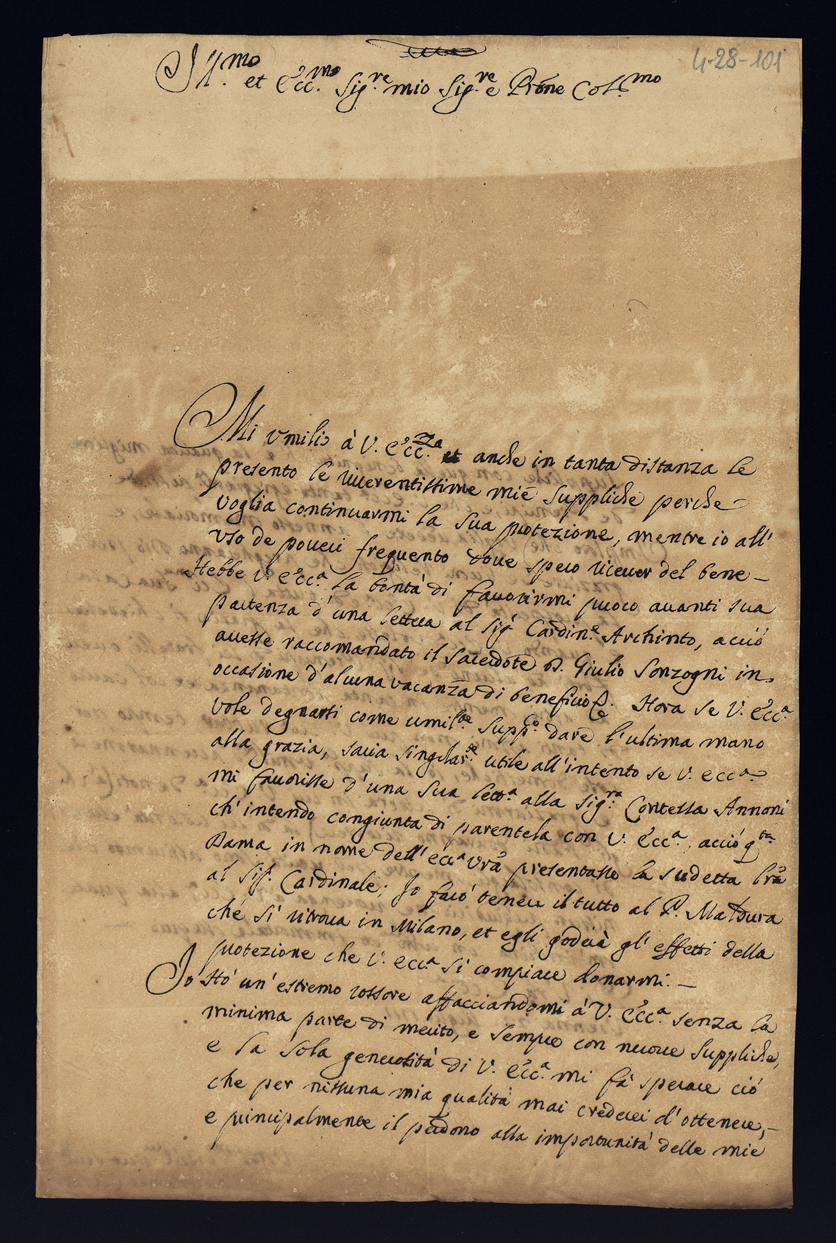 4-28-101
Ill.mo et Ecc.mo Sig.re mio Sig.re e Prõne Col.mo
Mi umilio à V. Ecc.za anche in tanta distanza le
presento le riverentissime mie suppliche perche
voglia continuarmi la sua protezione, mentre io all'
uso de poveri frequento dove spero ricever del bene –
Hebbe V. Ecc.a la bontà di favorirmi puoco avanti sua
partenza d'una lettera al Sig.r Cardin.e Archinto, acciò
avesse raccomandato il sacerdote D. Giulio Sonzogni in
occasione d'alcuna vacanza di beneficio. Hora se V. Ecc.a
vole degnarsi come umil.te supp.o dare l'ultima mano
alla grazia, saria singolar.te utile all'intento se V. Ecc.a
mi favorisse d'una sua lett.a alla Sig.ra Contessa Annoni
ch'intendo congiunta di parentela con V. Ecc.a, acciò q.ta
Dama in nome dell'Ecc.a Vrã presentasse la sudetta lrã
al Sig.r Cardinale; Io farò tenere il tutto al P. Madura
che si ritrova in Milano, et egli goderà gl'effetti della
protezione che V. Ecc.a si compiace donarmi: –
Io stò un'estremo rossore affacciandomi à V. Ecc.a senza la
minima parte di merito, e sempre con nuove suppliche,
e la sola generosità di V. Ecc.a mi fà sperare ciò
che per nissuna mia qualità mai crederei d'ottenere, –
e principalmente il perdono alla importunità delle mie